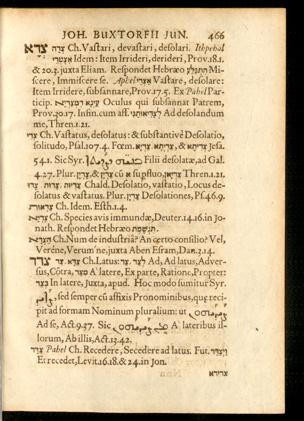 JOH. BUXTORFII JUN. 466
צְדָא צְדָה Ch. Vastari, devastari, desolari. Ithpehal
אִצְטְדִי Idem: Item Irrideri, derideri, Prov. 18.1.
& 20.3. juxta Eliam. Respondet Hebræo הִתְגַּלַּע Mi-
scere, Immiscere se. Aphel אַצְדִּי Vastare, desolare:
Item Irridere, subsannare, Prov. 17.5. Ex Pahel Par-
ticip. Oculus qui subsannat Patrem,
Prov. 30.17. Infin. cum aff. Ad desolandum
me, Thren. 1.21.
צְדִי Ch. Vastatus, desolatus: & substantivè Desolatio,
solitudo, Psal. 107.4. Fœm. Jesa.
54.1. Sic Syr. Filii desolatæ, ad Gal.
4.27. Plur. צְדַיִן & צְדָן, & cũ א supstuo, צְדָאִן Thren. 1.21.
Chald. Desolatio, vastatio, Locus de-
solatus & vastatus. Plur. Desolationes, Ps. 46.9.
Ch. Idem. Esth. 1.4.
Ch. Species avis immundæ, Deuter. 14.16. in Jo-
nath. Respondet Hebræo תִּנְשֶׁמֶת
הַצְדָּא Ch. Num de industriâ? An certo consilio? Vel,
Veréne, Verum'ne, juxta Aben Esram, Dan. 3.14.
צדד צַד Ch. Latus: לְצַד Ad, Ad latus, Adver-
sus, Cõtra, מִצַּד A' latere, Ex parte, Ratione, Propter:
In latere, Juxta, apud. Hoc modo sumitur Syr.
sed semper cũ affixis Pronominibus, quæ reci-
pit ad formam Nominum pluralium: ut
Ad se, Act. 9.37. Sic A' lateribus il-
lorum, Ab illis, Act. 13.42.
צַדֵּד Pahel Ch. Recedere, Secedere ad latus. Fut.
Et recedet, Levit. 16.18. & 24. in Jon.